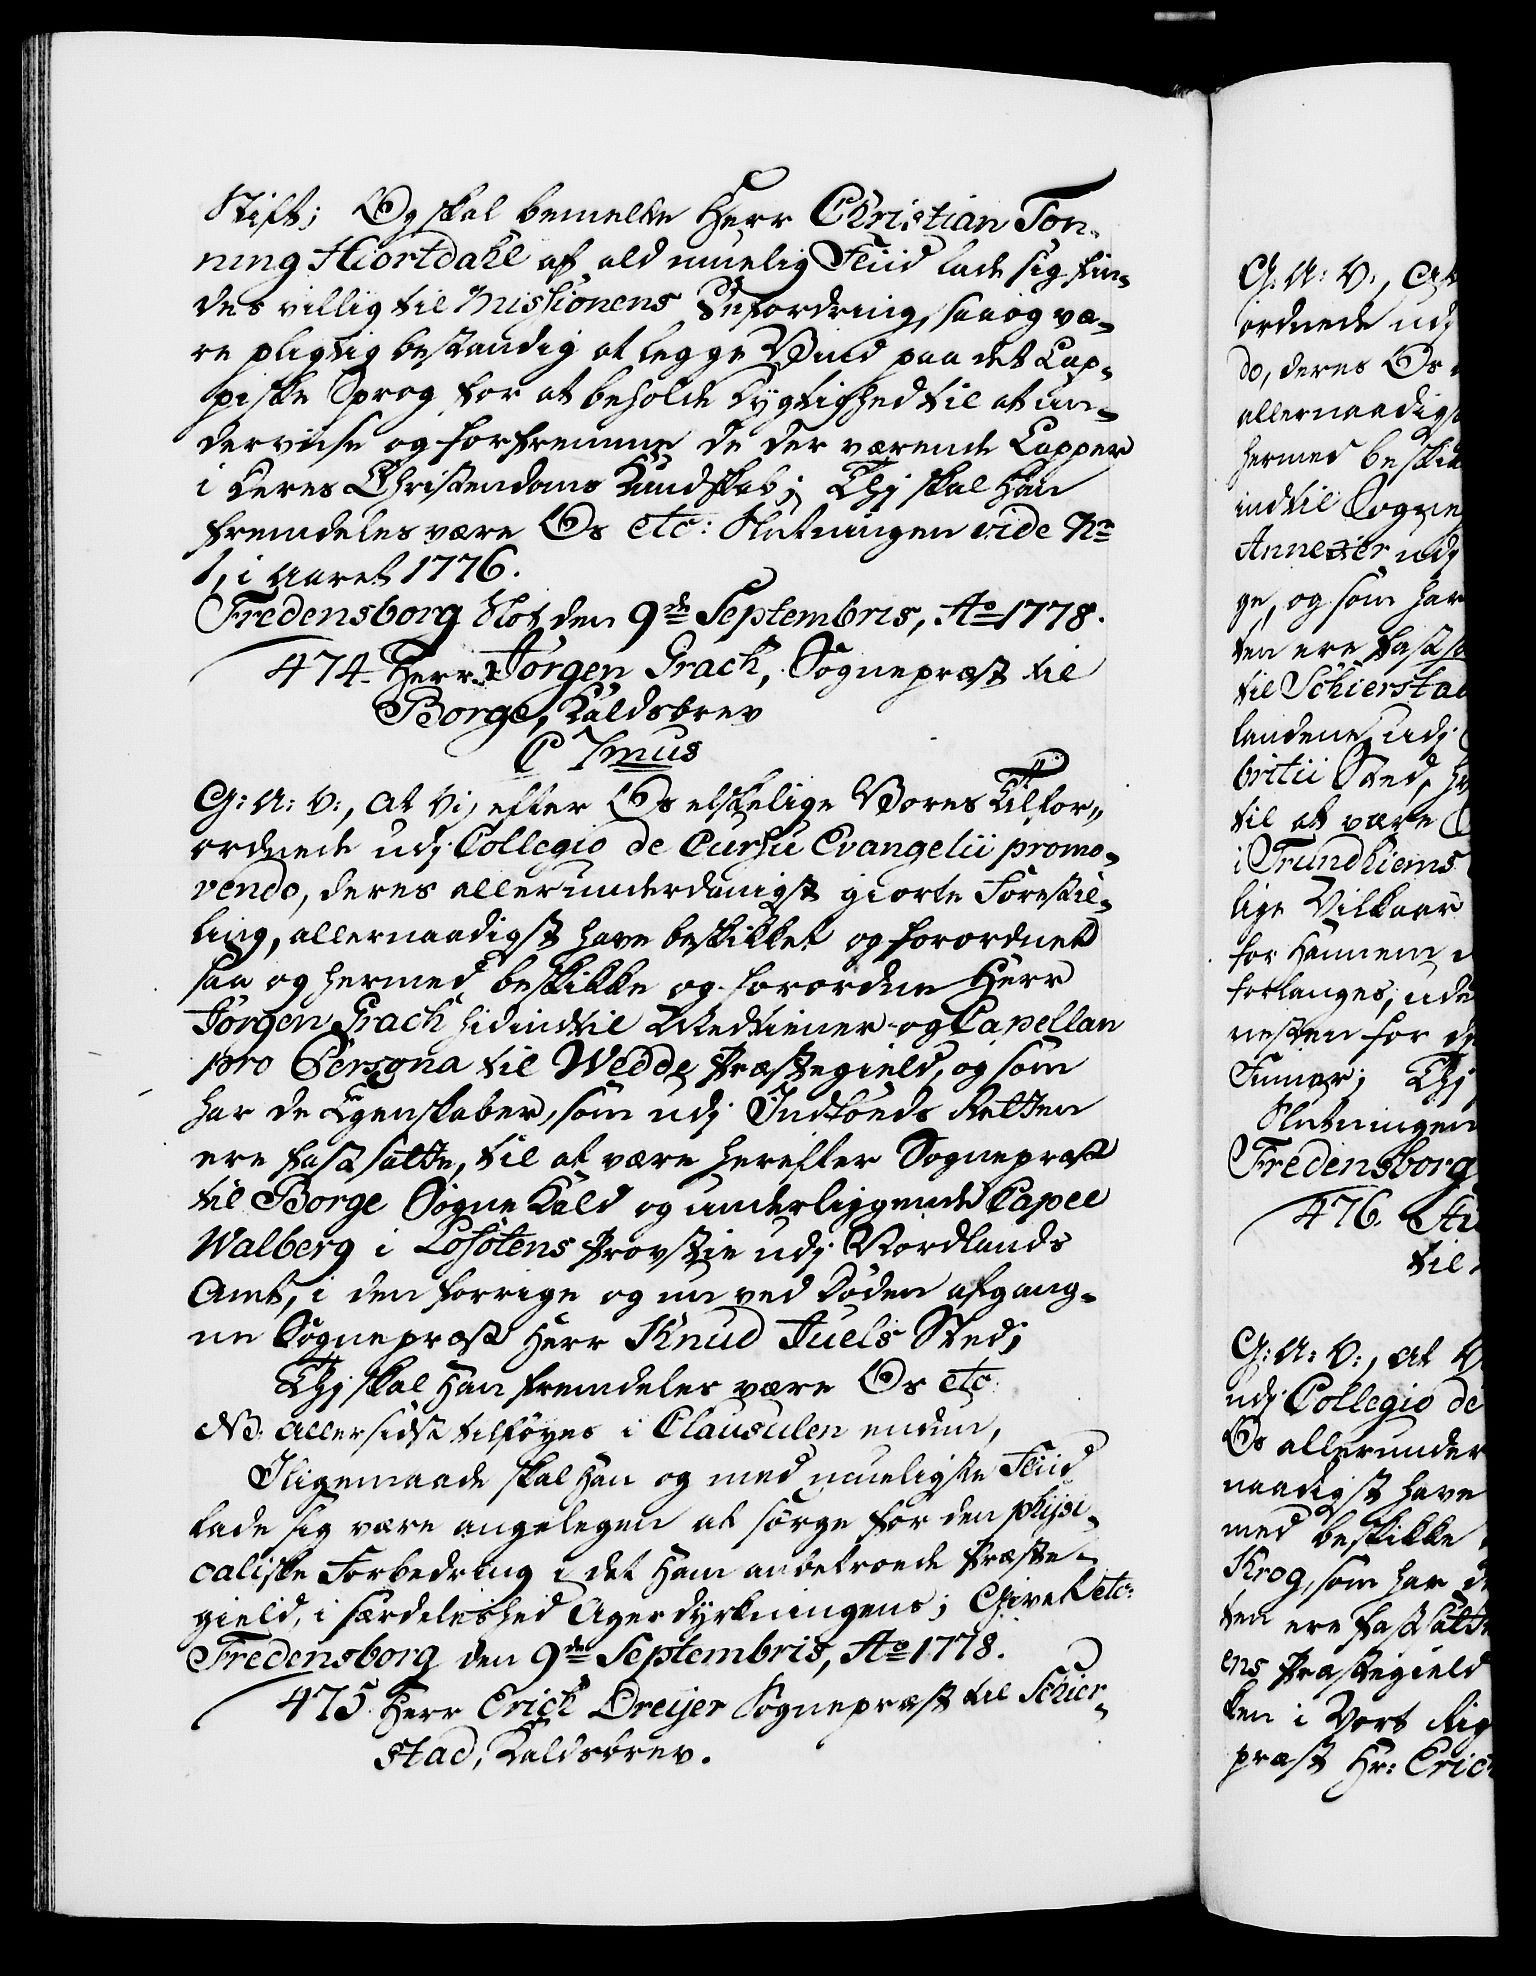 Stift; Og skal bemelte Herr Christian Ton-
ning Hiortdahl af ald muelig Fliid lade sig fin-
des villig til Missionens Befordring, saa og væ-
re pligtig bestandig at legge Vind paa det Lap-
piske Sprog for at beholde Dygtighed til at un-
derviise og forfremme de der værende Lapper
i deres Christendoms Kundskab; Thj skal Han
fremdeles være Os etc: Slutningen vide No
1, i Aaret 1776.
Fredensborg Slot den 9de Septembris, Ao 1778.
474. Herr Jörgen Grach, Sognepræst til
Borge, Kaldsbrev
C 7mus
G: A: V:, at Vi, efter Os elskelige Vores Tilfor-
ordnede udj Collegio de Cursu Evangelii promo-
vendo, deres allerunderdanigst giorte Forestil-
ling, allernaadigst have beskikket og forordnet
saa og hermed beskikke og forordne Herr
Jörgen Grach hidindtil Medtiener og Capellan
pro Persona til Wedde Præstegield, og som
har de Egenskaber, som udj Indföds Retten
ere fastsatte, til at være herefter Sognepræst
til Borge Sogne Kald og underliggende Capel
Walberg i Lofötens Provstie udj Nordlands
Amt, i den forrige og nu ved Döden afgang-
ne Sognepræst Herr Knud Juels Sted;
Thj skal Han fremdeles være Os etc.
NB. Allersidst tilföyes i Clausulen enden,
Iligemaade skal Han og med mueligste Fliid
lade sig være angelegen at sörge for den physi-
caliske Forbedring i det Ham anbetroede Præste-
gield, i særdeleshed Agerdyrkningens; Givet etc:
Fredensborg den 9de Septembris, Ao 1778.
475. Herr Erich Dreijer Sognepræst til Schier-
stad, Kaldsbrev.
G: A: V:, at
ordnede udj
do, deres Os
allernaadigst
hermed beskik
indtil Sogne
Annexer udj
ge, og som har
ten ere fastsa
til Schierstad
landene, udj
britii Sted, h
til at være
i Trundhiems
lige Vilkaar
for Hannem
forlanges, ude
nesten for d
Summer; Thj
Slutningen
Fredensborg
476.
til
G: A: V:, at V
udj Collegio de
Os allerunder
naadigst have
med beskikke
Krog, som har d
ten ere fastsatt
ens Præstegield
ten i Vort Rig
præst Hr: Eric